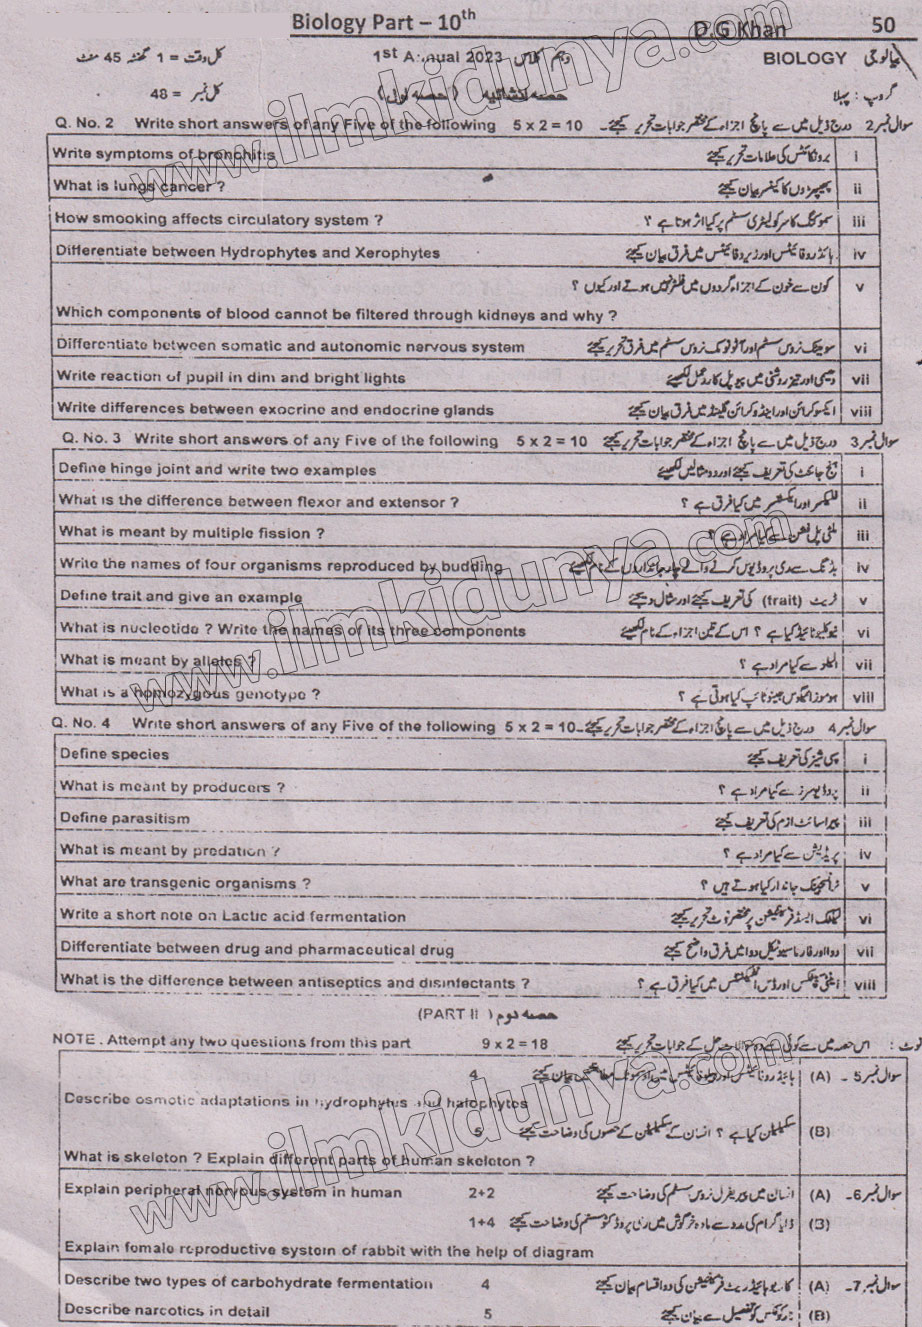 Biology Part – 10th D.G Khan 50
کل وقت = 1 گھنٹہ 45 منٹ 1st Annual 2023 دہم کلاس BIOLOGY بیالوجی
کل نمبر = 48 حصہ انشائیہ (حصہ اول) گروپ : پہلا
Q. No. 2 Write short answers of any Five of the following 5 x 2 = 10 سوال نمبر 2 درج ذیل میں سے پانچ اجزاء کے مختصر جوابات تحریر کیجئے ۔
Write symptoms of bronchitis برونکائٹس کی علامات تحریر کیجئے i
What is lungs cancer ? پھیپھڑوں کا کینسر بیان کیجئے ii
How smooking affects circulatory system ? سموکنگ کا سرکولیٹری سسٹم پر کیا اثر ہوتا ہے ؟ iii
Differentiate between Hydrophytes and Xerophytes ہائڈروفائیٹس اور زیروفائیٹس میں فرق بیان کیجئے iv
کون سے خون کے اجزاء گردوں میں فلٹر نہیں ہوتے اور کیوں ؟ v
Which components of blood cannot be filtered through kidneys and why ?
Differentiate between somatic and autonomic nervous system سومیٹک نروس سسٹم اور آٹونومک نروس سسٹم میں فرق تحریر کیجئے vi
Write reaction of pupil in dim and bright lights دھیمی اور تیز روشنی میں پیوپل کا ردعمل لکھیئے vii
Write differences between exocrine and endocrine glands ایکسوکرائن اور اینڈوکرائن گلینڈ میں فرق بیان کیجئے viii
Q. No. 3 Write short answers of any Five of the following 5 x 2 = 10 سوال نمبر 3 درج ذیل میں سے پانچ اجزاء کے مختصر جوابات تحریر کیجئے
Define hinge joint and write two examples ہنج جائنٹ کی تعریف کیجئے اور دو مثالیں لکھیئے i
What is the difference between flexor and extensor ? فلیکسر اور ایکسٹینسر میں کیا فرق ہے ؟ ii
What is meant by multiple fission ? ملٹی پل فشن سے کیا مراد ہے ؟ iii
Write the names of four organisms reproduced by budding بڈنگ سے ری پروڈیوس کرنے والے چار جانداروں کے نام لکھیئے iv
Define trait and give an example ٹریٹ (trait) کی تعریف کیجئے اور مثال دیجئے v
What is nucleotide ? Write the names of its three components نیوکلیوٹائیڈ کیا ہے ؟ اس کے تین اجزاء کے نام لکھیئے vi
What is meant by alleles ? الیلز سے کیا مراد ہے ؟ vii
What is a homozygous genotype ? ہوموزائیگس جینوٹائپ کیا ہوتی ہے ؟ viii
Q. No. 4 Write short answers of any Five of the following 5 x 2 = 10 سوال نمبر 4 درج ذیل میں سے پانچ اجزاء کے مختصر جوابات تحریر کیجئے۔
Define species سپی شیز کی تعریف کیجئے i
What is meant by producers ? پروڈیوسرز سے کیا مراد ہے ؟ ii
Define parasitism پیراسائٹ ازم کی تعریف کیجئے iii
What is meant by predation ? پریڈیشن سے کیا مراد ہے ؟ iv
What are transgenic organisms ? ٹرانسجینک جاندار کیا ہوتے ہیں ؟ v
Write a short note on Lactic acid fermentation لیکٹک ایسڈ فرمنٹیشن پر مختصر نوٹ تحریر کیجئے vi
Differentiate between drug and pharmaceutical drug دوا اور فارماسیوٹیکل دوا میں فرق واضح کیجئے vii
What is the difference between antiseptics and disinfectants ? اینٹی سیپٹکس اور ڈس انفیکٹنٹس میں کیا فرق ہے ؟ viii
(PART II) حصہ دوم
NOTE . Attempt any two questions from this part 9 x 2 = 18 نوٹ : اس حصہ میں سے کوئی سے دو سوالات کے جوابات تحریر کیجئے
4 ہائیڈروفائیٹس اور ہیلوفائیٹس میں بیان کیجئے (A) سوال نمبر 5۔
Describe osmotic adaptations in hydrophytes and halophytes
5 سکیلیٹن کیا ہے ؟ انسان کے سکیلیٹن کے حصوں کی وضاحت کیجئے (B)
What is skeleton ? Explain different parts of human skeleton ?
Explain peripheral nervous system in human 2+2 انسان میں پیریفرل نروس سسٹم کی وضاحت کیجئے (A) سوال نمبر 6۔
1+4 ڈایاگرام کی مدد سے مادہ خرگوش میں ری پروڈکٹو سسٹم کی وضاحت کیجئے (B)
Explain female reproductive system of rabbit with the help of diagram
Describe two types of carbohydrate fermentation 4 کاربوہائیڈریٹ فرمنٹیشن کی دو اقسام بیان کیجئے (A) سوال نمبر 7۔
Describe narcotics in detail 5 نارکوٹکس کو تفصیل سے بیان کیجئے (B)
www.ilmkidunya.com
www.ilmkidunya.com
www.ilmkidunya.com